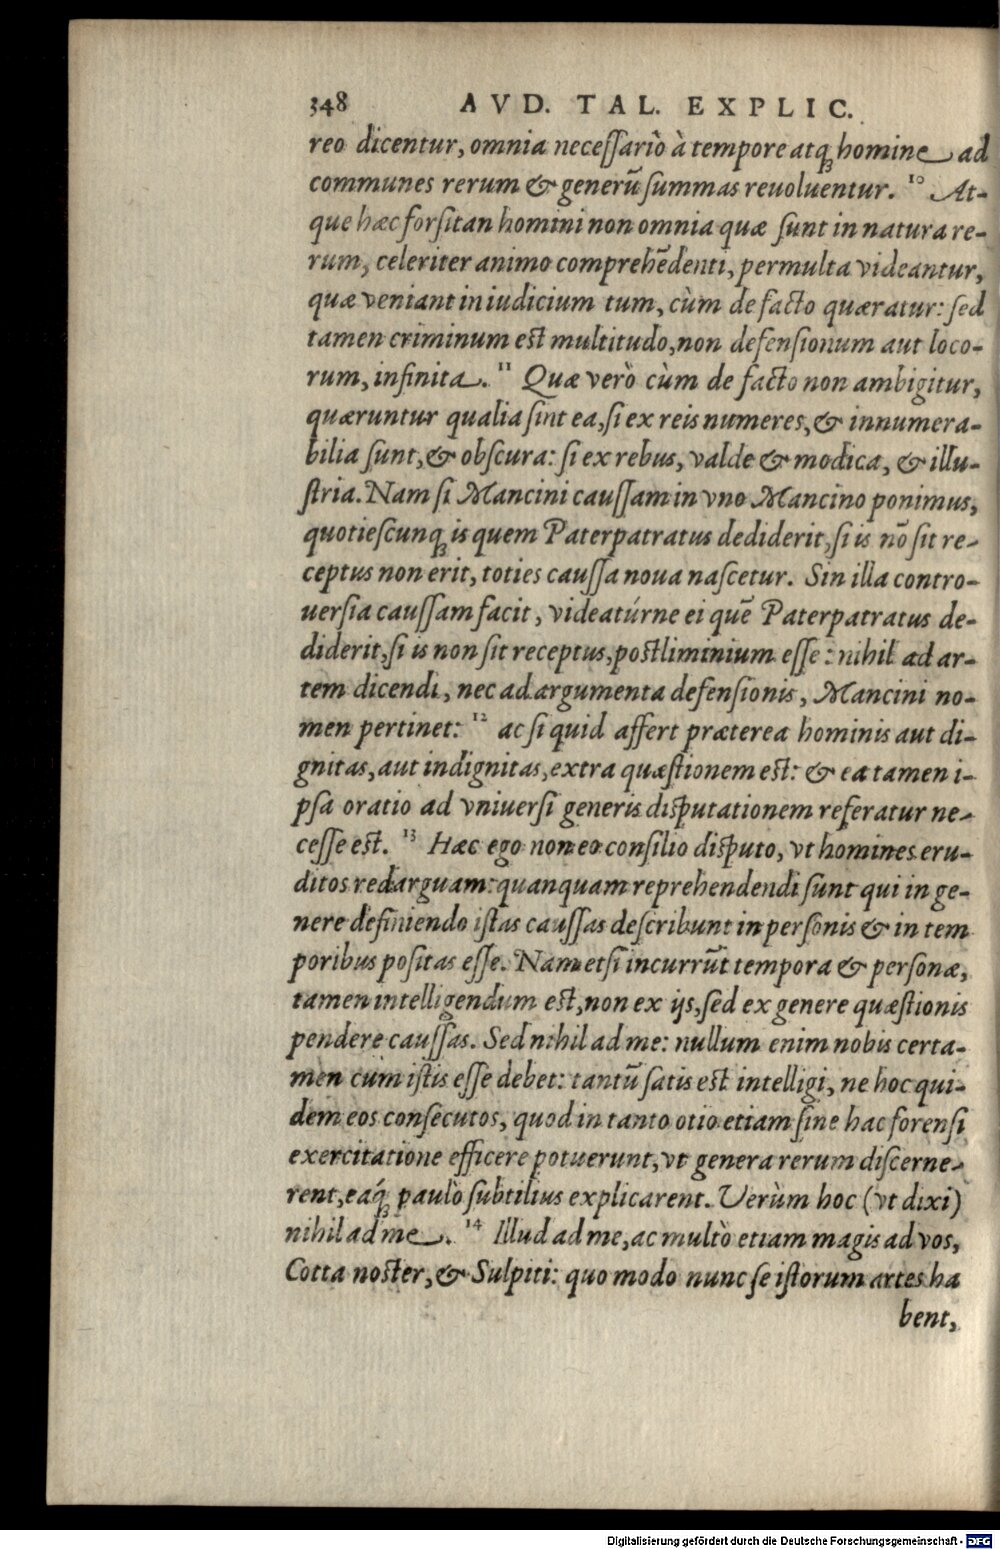 348 AVD. TAL. EXPLIC.
reo dicentur, omnia neceſſariò à tempore atq́ homine ad
communes rerum & generū ſummas reuoluentur. 10 At-
que hæc forſitan homini non omnia quæ ſunt in natura re-
rum, celeriter animo comprehēdenti, permulta videantur,
quæ veniant in iudicium tum, cùm de facto quæratur: ſed
tamen criminum eſt multitudo, non defenſionum aut loco-
rum, infinita. 11 Quæ verò cùm de facto non ambigitur,
quæruntur qualia ſint ea, ſi ex reis numeres, & innumera-
bilia ſunt, & obſcura: ſi ex rebus, valde & modica, & illu-
ſtria. Nam ſi Mancini cauſſam in vno Mancino ponimus,
quotieſcunq́ is quem Paterpatratus dediderit, ſi is nō ſit re-
ceptus non erit, toties cauſſa noua naſcetur. Sin illa contro-
uerſia cauſſam facit, videatúrne ei quē Paterpatratus de-
diderit, ſi is non ſit receptus, poſtliminium eſſe: nihil ad ar-
tem dicendi, nec ad argumenta defenſionis, Mancini no-
men pertinet: 12 ac ſi quid affert præterea hominis aut di-
gnitas, aut indignitas, extra quæſtionem eſt: & ea tamen i-
pſa oratio ad vniuerſi generis diſputationem referatur ne-
ceſſe eſt. 13 Hæc ego non eo conſilio diſputo, vt homines eru-
ditos redarguam: quanquam reprehendendi ſunt qui in ge-
nere definiendo iſtas cauſſas deſcribunt in perſonis & in tem
poribus poſitas eſſe. Nam etſi incurrūt tempora & perſonæ,
tamen intelligendum eſt, non ex ijs, ſed ex genere quæſtionis
pendere cauſſas. Sed nihil ad me: nullum enim nobis certa-
men cum iſtis eſſe debet: tantū ſatis eſt intelligi, ne hoc qui-
dem eos conſecutos, quod in tanto otio etiam ſine hac forenſi
exercitatione efficere potuerunt, vt genera rerum diſcerne-
rent, eáq́ paulò ſubtilius explicarent. Verùm hoc (vt dixi)
nihil ad me. 14 Illud ad me, ac multò etiam magis ad vos,
Cotta noſter, & Sulpiti: quo modo nunc ſe iſtorum artes ha
bent,
Digitalisierung gefördert durch die Deutsche Forschungsgemeinschaft - DFG